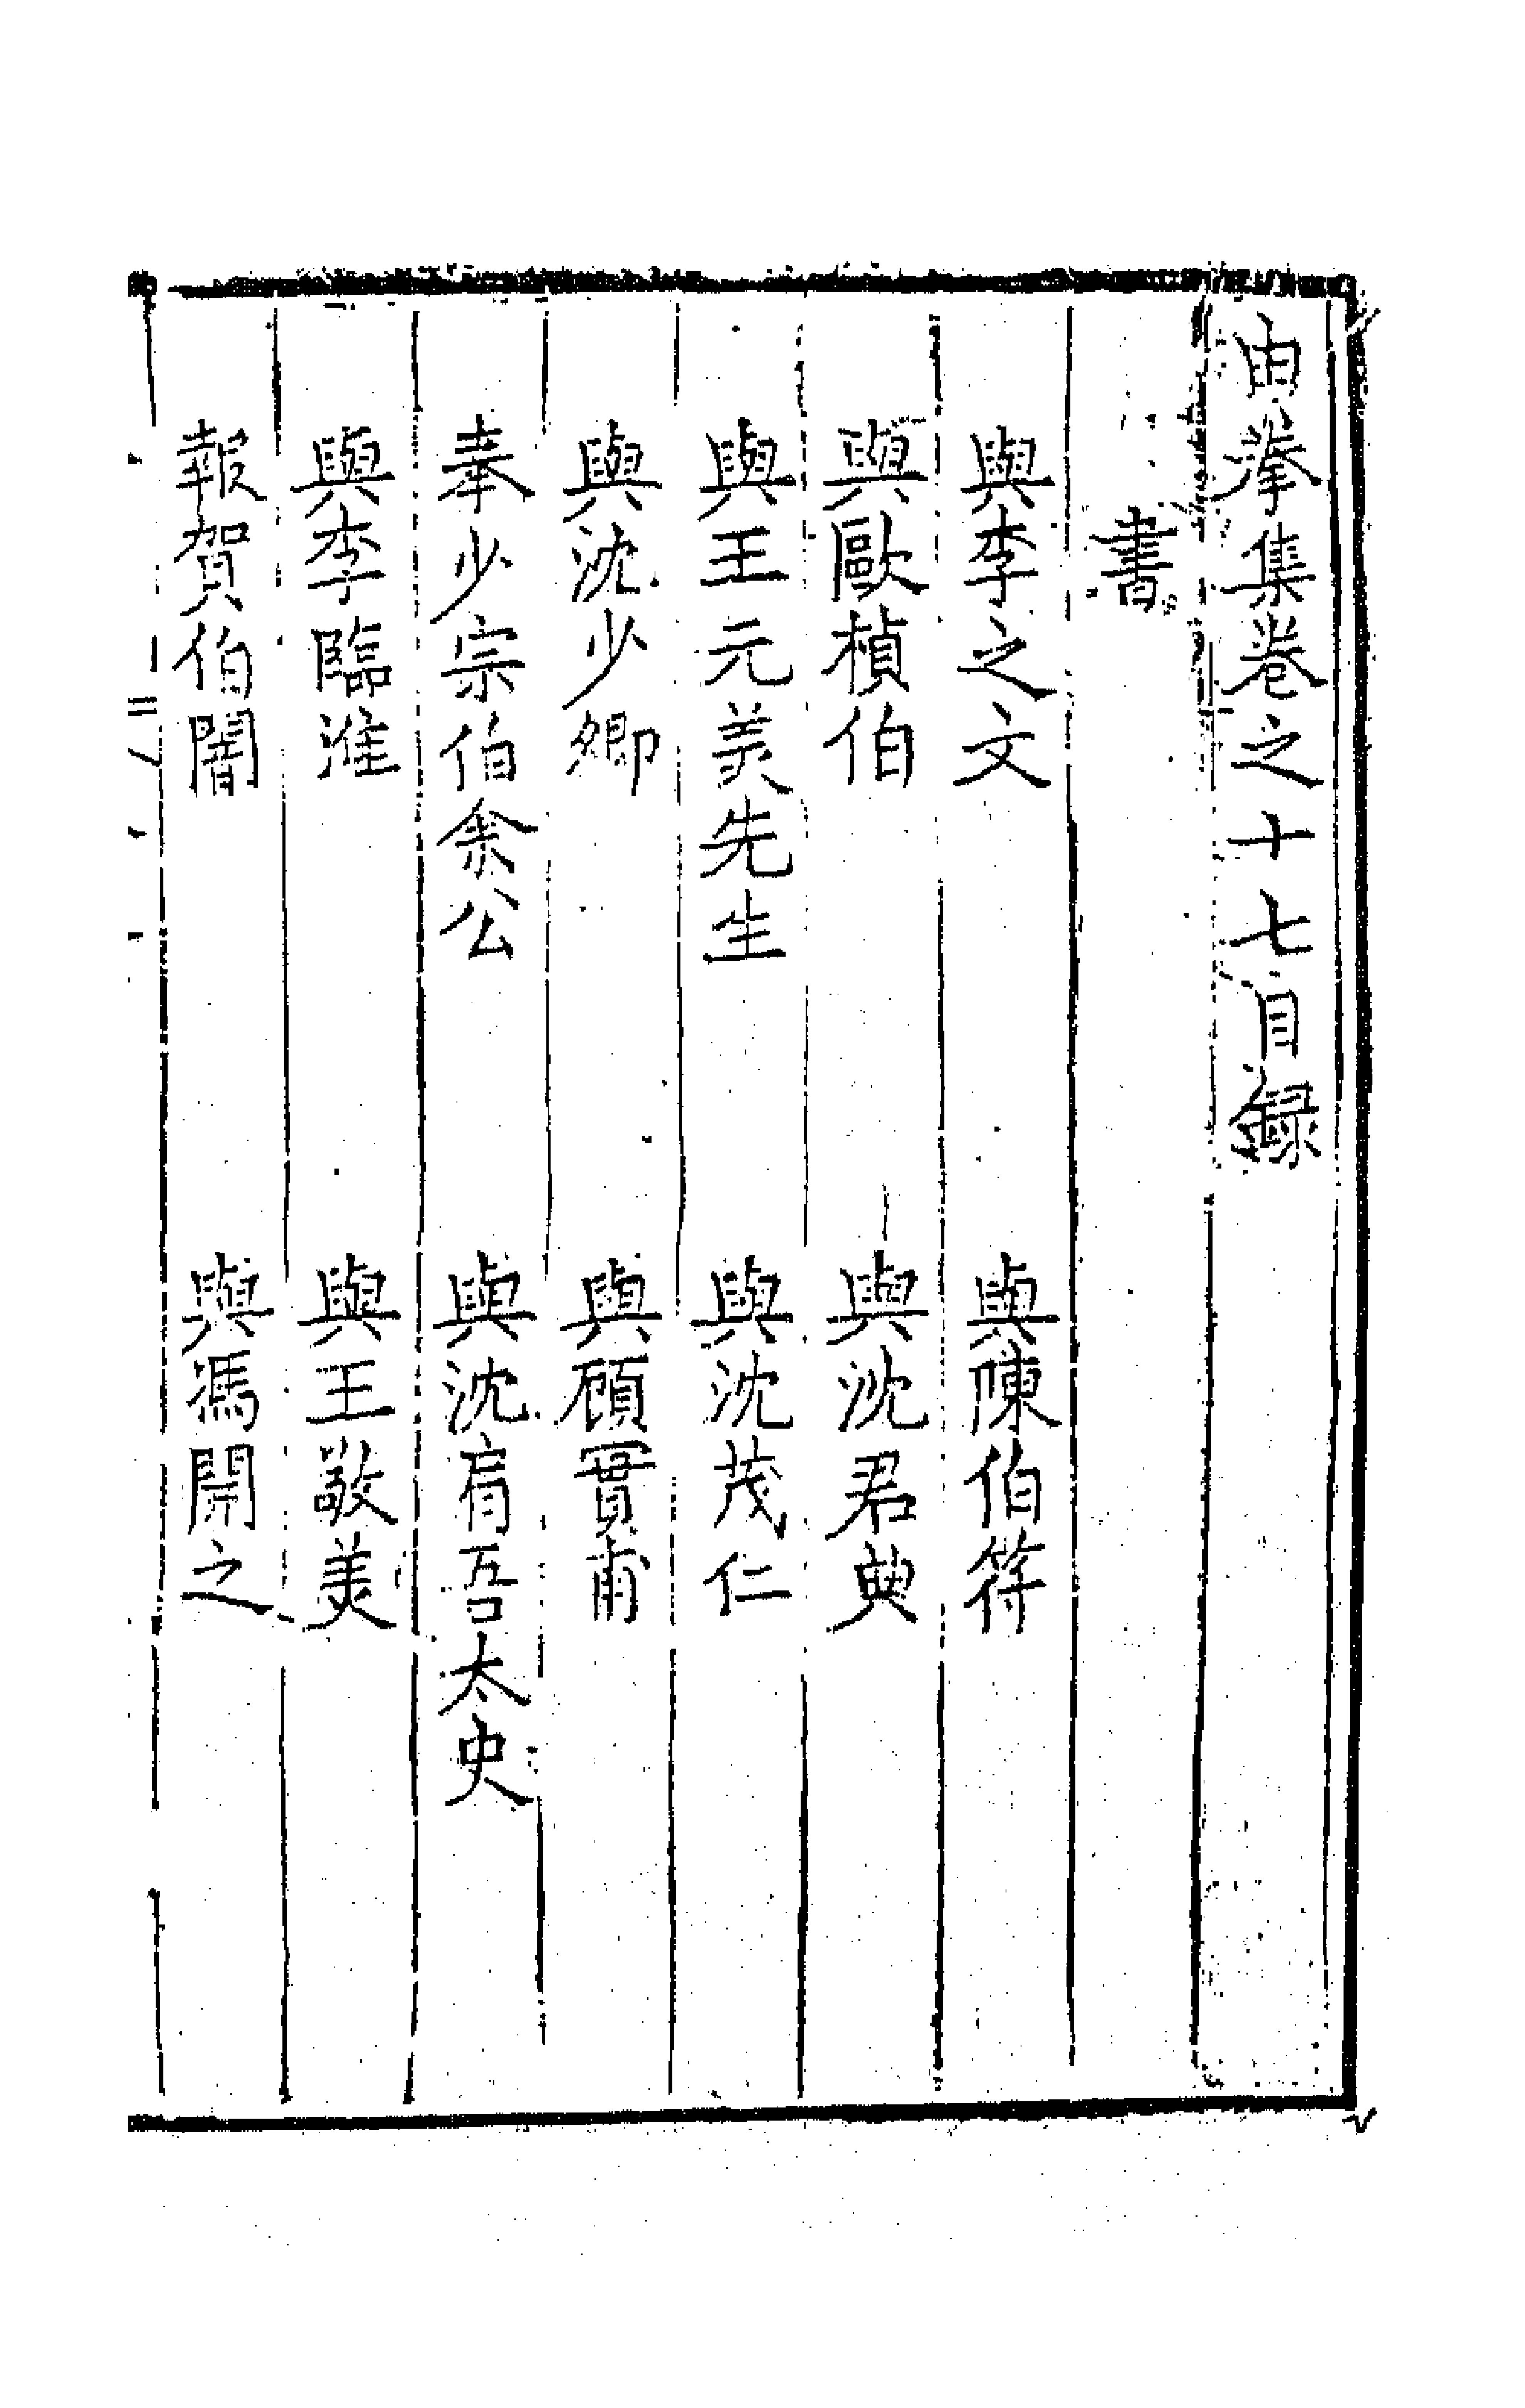 由拳集卷之十七目録
書
與李之文　與陳伯符
與歐楨伯　與沈君典
與王元美先生　與沈茂仁
與沈少卿　與顧實甫
奉少宗伯余公　與沈肩吾太史
與李臨淮　與王敬美
報賀伯闇　與馮開之